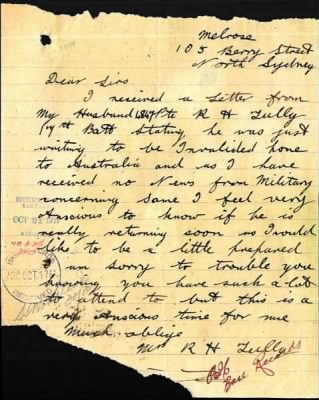 Melrose
105 Berry Street
North Sydney
Dear Sirs
I received a Letter from
My Husband 1847 Pte R H Tully
Batt Stating he was just
waiting to be Invalided home
to Australia and as I have
received no News from Military
concerning Same I feel very
Anscious to know if he is
really returning soon as I would
like to be a little prepared
I am sorry to trouble you
knowing you have such a lot
to attend to but this is a
very Anscious time for me
Much oblige
Mrs R H Tully
Base Records